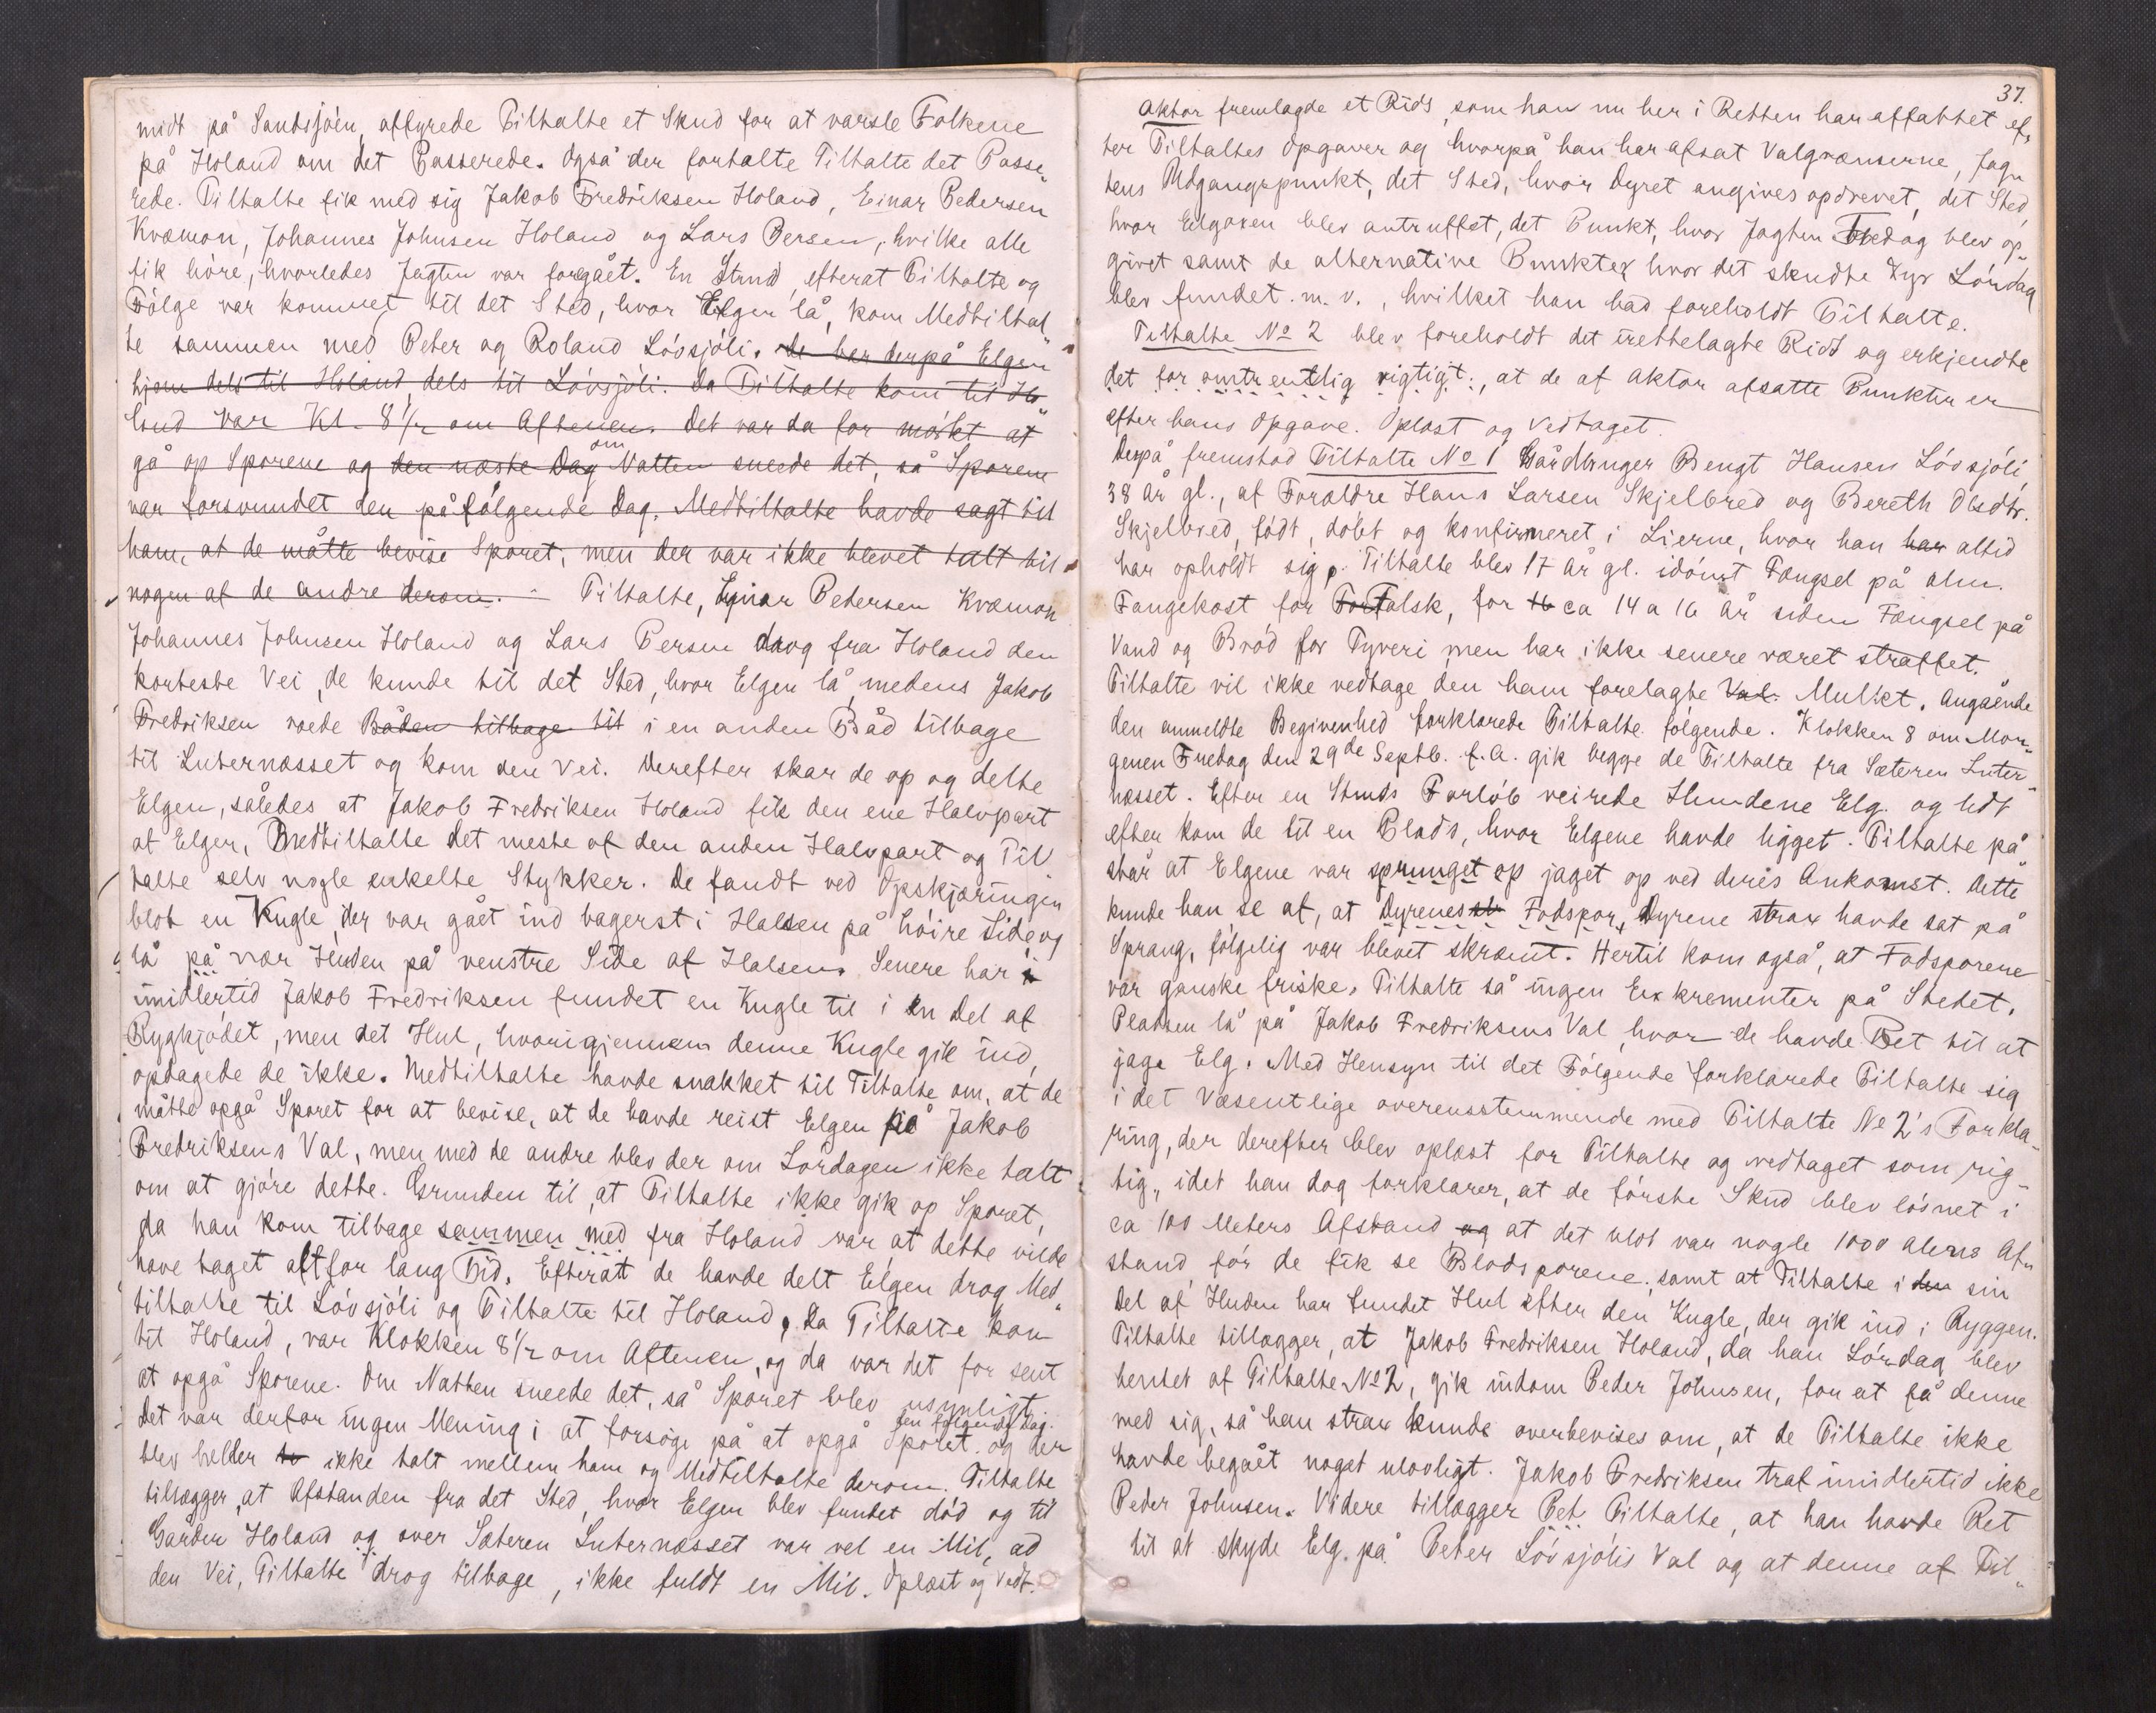 midt på Sandsjøen, affyrede Tiltalte et Skud for at varsle Folkene
på Holand om det Passerede. Også der fortalte Tiltalte det Passe„
rede. Tiltalte fik med sig Jakob Fredriksen Holand, Einar Pedersen
Kvæmon, Johannes Johnsen Holand og Lars Persen, hvilke alle
fik høre, hvorledes Jagten var foregået. En Stund, efterat Tiltalte og
Følge var kommet til det Sted, hvor Elgen lå, kom Medtiltal„
te sammen med Peter og Roland Løvsjøli. de bar derpå Elgen
hjem dels til Holand, dels til Løvsjøli. Da Tiltalte kom til Ho„
land var Kl. 8 1/2 om Aftenen. Det var da for mørkt at
gå op Sporene og den næste Dag om Natten sneede det, så Sporene
var forsvundet den påfølgende Dag. Medtiltalte havde sagt til
ham, at de måtte bevise Sporet, men der var ikke blevet talt til
nogen af de andre derom. - Tiltalte, Einar Pedersen Kvæmon
Johannes Johnsen Holand og Lars Persen drog fra Holand den
korteste Vei, de kunde til det Sted, hvor Elgen lå, medens Jakob
Fredriksen roede Båden tilbage til i en anden Båd tilbage
til Luternæsset og kom den Vei. Derefter skar de op og delte
Elgen, således at Jakob Fredriksen Holand fik den ene Halvpart
at Elgen, Medtiltalte det meste af den anden Halvpart og Til„
talte selv nogle enkelte Stykker. De fandt ved Opskjæringen
blot en Kugle, der var gået ind bagerst i Halsen på høire Side og
lå på nær Huden på venstre Side af Halsen. Senere har i
imidlertid Jakob Fredriksen fundet en Kugle til i en Del af
Rygkjødet, men det Hul, hvorigjennem denne Kugle gik ind,
opdagede de ikke. Medtiltalte havde snakket til Tiltalte om, at de
måtte opgå Sporet for at bevise, at de havde reist Elgen på Jakob
Fredriksens Val, men med de andre blev der om Lørdagen ikke talt
om at gjøre dette. Grunden til, at Tiltalte ikke gik op Sporet,
da han kom tilbage sammen med fra Holand var at dette vilde
have taget altfor lang Tid. Efteratt de havde delt Elgen drog Med„
tiltalte til Løvsjøli og Tiltalte til Holand, Da Tiltalte kom
til Holand, var Klokken 8 1/2 om Aftenen, og da var det for sent
at opgå Sporene. Om Natten sneede det, så Sporet blev usynligt.
Det var derfor ingen Mening i at forsøge på at opgå Sporet den følgende Dag. og der
blev heller to ikke talt mellem ham og Medtiltalte derom. Tiltalte
tillægger, at Afstanden fra det Sted, hvor Elgen blev fundet død og til
Garden Holand og over Sæteren Luternæsset var vel en Mil, ad
den Vei, Tiltalte drog tilbage, ikke fuldt en Mil. Oplæst og Vedt.
37.
Aktor fremlagde et Rids, som han nu her i Retten har affattet ef„
ter Tiltaltes Opgaver og hvorpå han har afsat Valgrænserne, Jag„
tens Udgangspunkt, det Sted, hvor Dyret angives opdrevet, det Sted,
hvor Elgoxen blev antruffet, det Punkt, hvor Jagten Fredag blev op„
givet samt de alternative Punkter hvor det skudte Dyr Lørdag
blev fundet. m. v., hvilket han bad foreholdt Tiltalte.
Tiltalte No 2 blev foreholdt det irettelagte Rids og erkjendte
det for omtrentlig rigtigt:, at de af Aktor afsatte Punkter er
efter hans Opgave. Oplæst og vedtaget.
Derpå fremstod Tiltalte No 1 Gårdbruger Bengt Hansen Løvsjøli,
38 år gl., af Forældre Hans Larsen Skjelbred og Bereth Olsdtr.
Skjelbred, født, døbt og konfirmeret i Lierne, hvor han har altid
har opholdt sig. Tiltalte blev 17 år gl. idømt Fængsel på alm.
Fangekost for Forfalsk, for 16 ca 14 a 16 år siden Fængsel på
Vand og Brød for Tyveri men har ikke senere været straffet.
Tiltalte vil ikke vedtage den ham forelagte Val. Mulkt. Angående
den anmeldte Begivenhed forklarede Tiltalte følgende. Klokken 8 om Mor„
genen Fredag den 29de Septb. f. A. gik begge de Tiltalte fra Sæteren Luter„
næsset. Efter en Stunds Forløb veirede Hundene Elg. og lidt
efter kom de til en Plads, hvor Elgene havde ligget. Tiltalte på„
står at Elgene var sprunget op jaget op ved deres Ankomst. Dette
kunde han se af, at Dyrenes Fodspor, Dyrene strax havde sat på
Sprang, følgelig var blevet skræmt. Hertil kom også, at Fodsporene
var ganske friske. Tiltalte så ingen Exkrementer på Stedet.
Pladsen lå på Jakob Fredriksens Val, hvor de havde Ret til at
jage Elg. Med Hensyn til det Følgende forklarede Tiltalte sig
i det Væsentlige overensstemmende med Tiltalte No 2's Forkla„
ring, der derefter blev oplæst for Tiltalte og vedtaget som rig„
tig, idet han dog forklarer, at de første Skud blev løsnet i
ca 100 Meters Afstand og at det blot var nogle 1000 Alens Af„
stand før de fik se Blodsporene, samt at Tiltalte i den sin
Del af Huden har fundet Hul efter den Kugle, der gik ind i Ryggen.
Tiltalte tillægger, at Jakob Fredriksen Holand, da han Lørdag blev
hentet af Tiltalte No 2, gik indom Peder Johnsen, for at få denne
med sig, så han strax kunde overbevises om, at de Tiltalte ikke
havde begået noget ulovligt. Jakob Fredriksen traf imidlertid ikke
Peder Johnsen. Videre tillægger Pet Tiltalte, at han havde Ret
til at skyde Elg. på Peter Løvsjølis Val og at denne af Til„